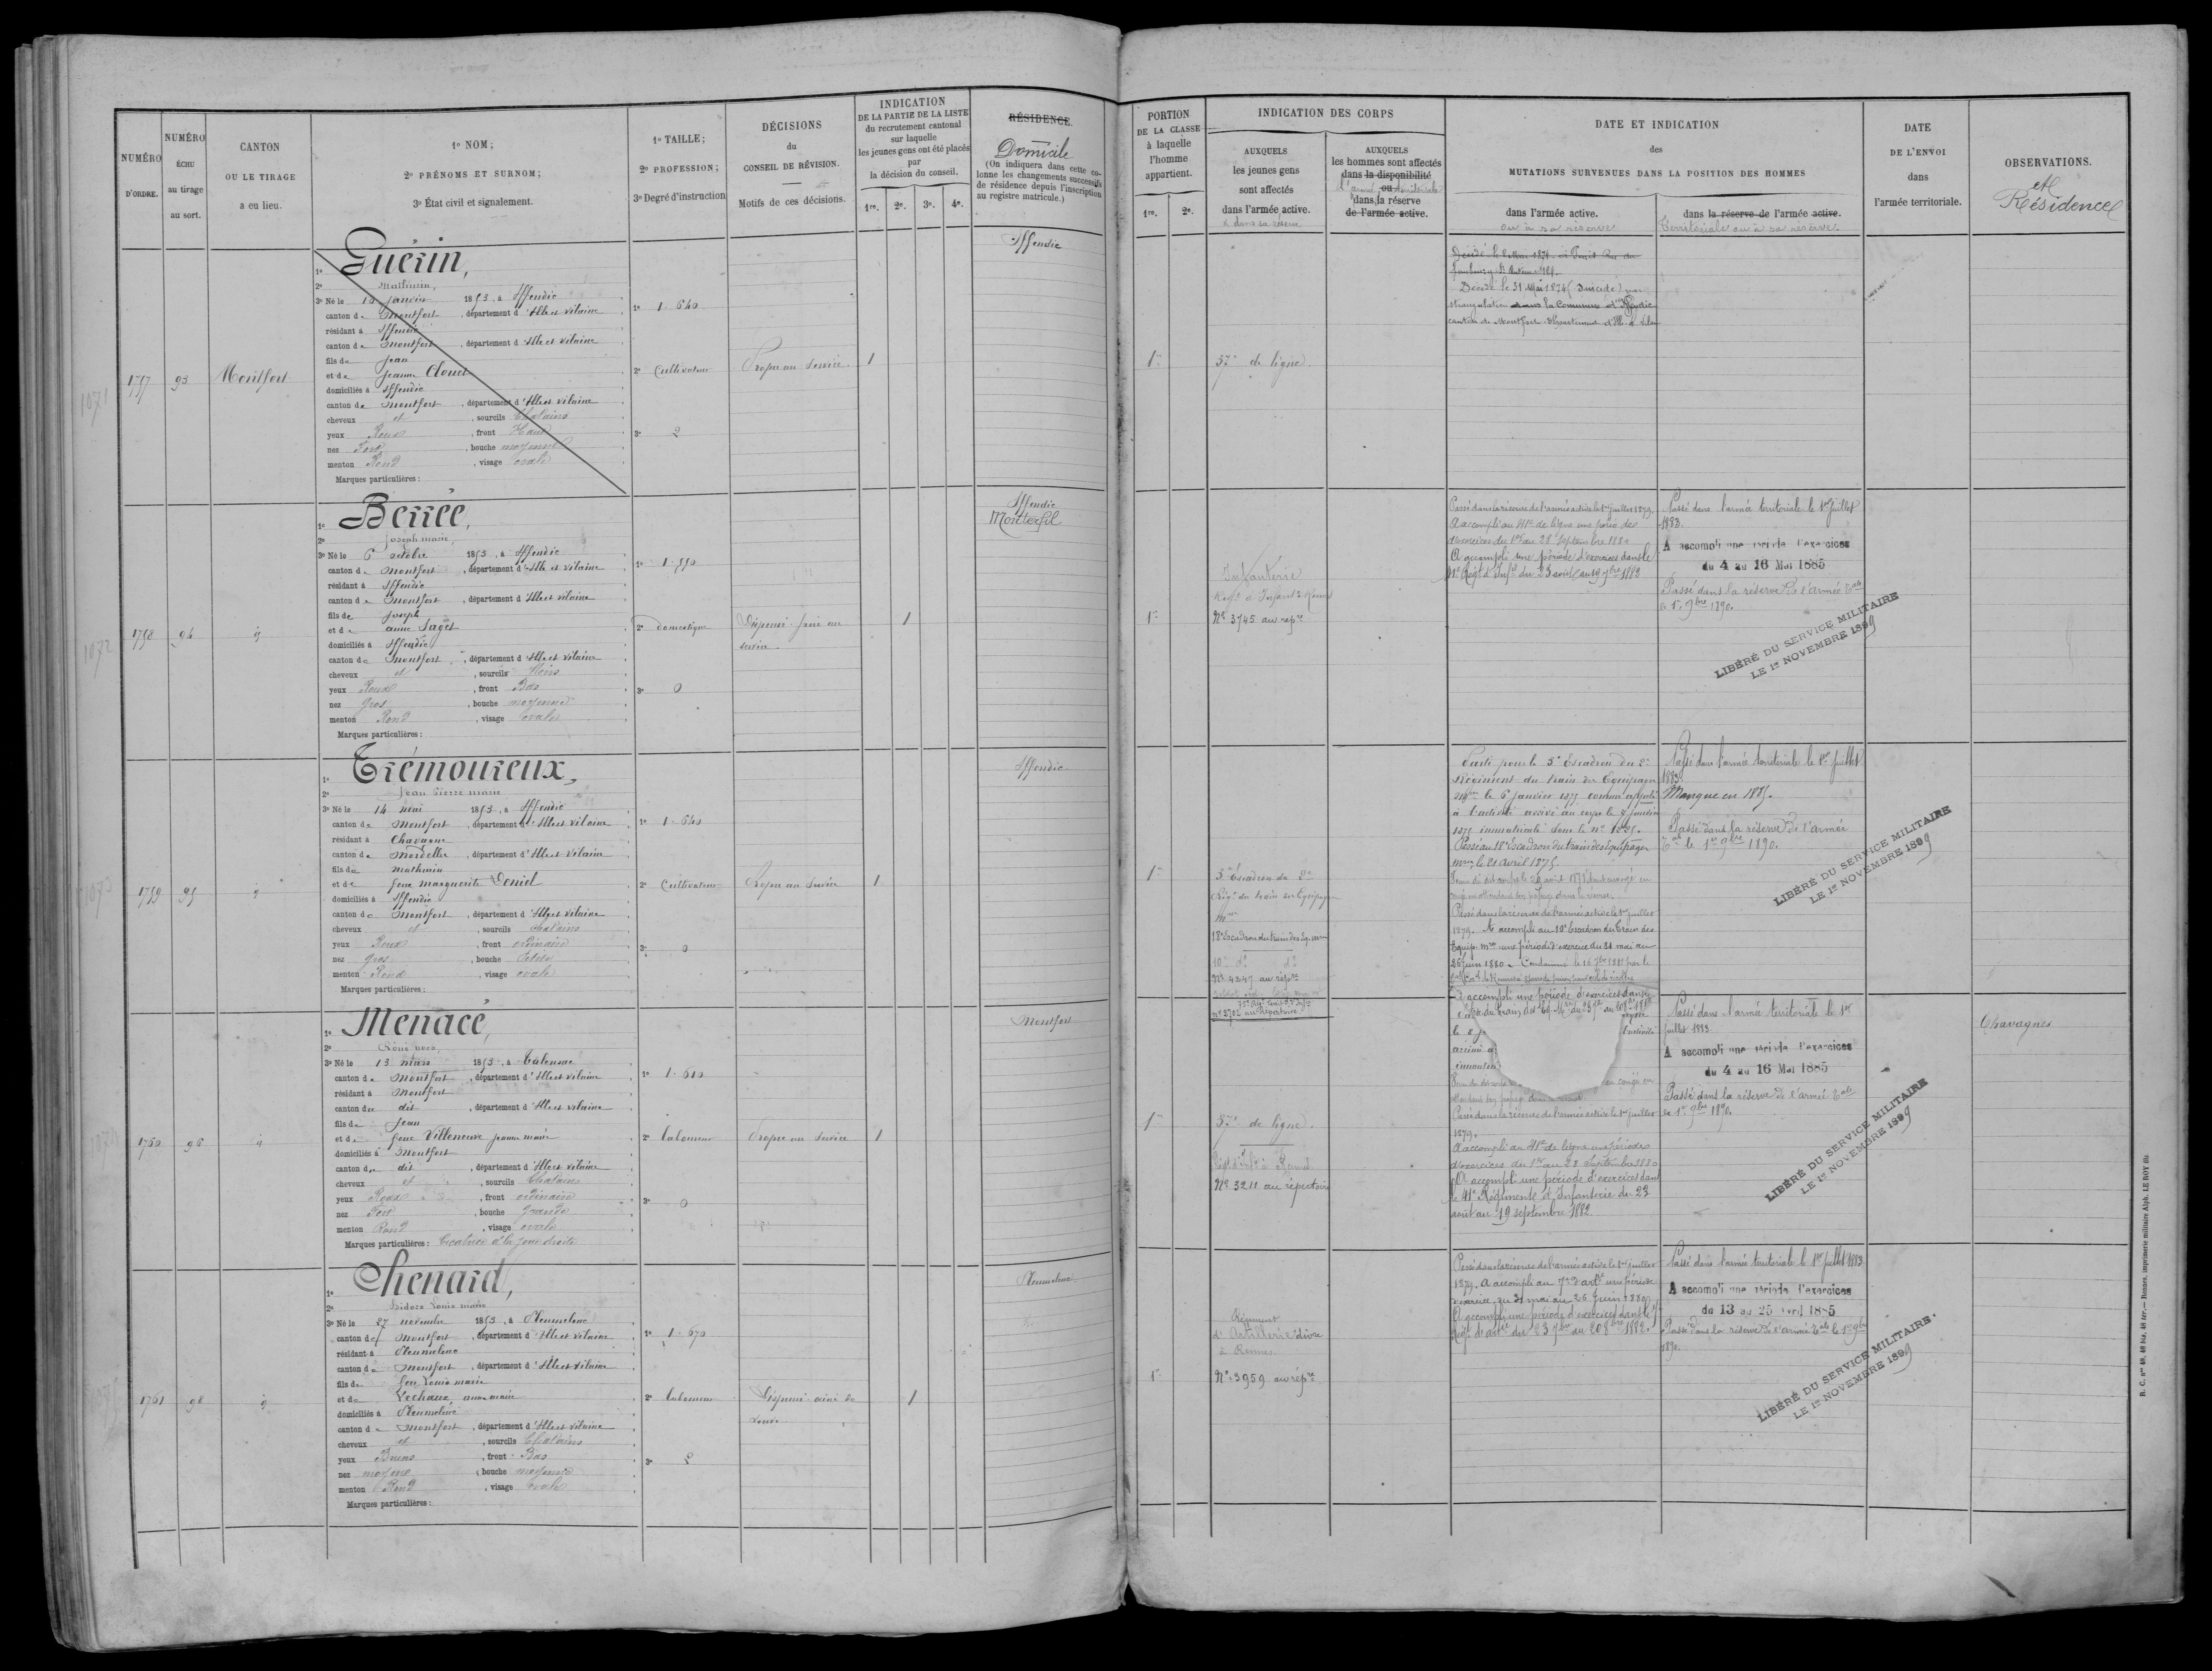 NUMÉRO
D'ORDRE.
NUMÉRO
ÉCHU
au tirage
au sort.
CANTON
OU LE TIRAGE
a eu lieu.
1º NOM;
2º PRÉNOMS ET SURNOM;
3º État civil et signalement.
1º TAILLE;
2º PROFESSION;
3º Degré d'instruction
DÉCISIONS
du
CONSEIL DE RÉVISION.
Motifs de ces décisions.
INDICATION
DE LA PARTIE DE LA LISTE
du recrutement cantonal
sur laquelle
les jeunes gens ont été placés
par
la décision du conseil.
1re. 2e. 3e. 4e.
RÉSIDENCE.
Domicile
(On indiquera dans cette co-
lonne les changements successifs
de résidence depuis l'inscription
au registre matricule.)
PORTION
DE LA CLASSE
à laquelle
l'homme
appartient.
1re. 2e.
INDICATION DES CORPS
AUXQUELS
les jeunes gens
sont affectés
dans l'armée active.
& dans sa réserve
AUXQUELS
les hommes sont affectés
dans la disponibilité
ou
l'armée territoriale
dans la réserve
de l'armée active.
DATE ET INDICATION
des
MUTATIONS SURVENUES DANS LA POSITION DES HOMMES
dans l'armée active.
ou à sa réserve
dans la réserve de l'armée active.
Territoriale ou à sa réserve.
DATE
DE L'ENVOI
dans
l'armée territoriale.
OBSERVATIONS.
et
Résidence
1071
1757
93
Montfort
1º Guérin,
2º Mathurin,
3º Né le 10 janvier 1853, à Iffendic
canton de Montfort, département d'Ille et vilaine
résidant à Iffendic
canton de Montfort, département d'Ille et vilaine
fils de Jean
et de Jeanne Clouet
domiciliés à Iffendic
canton de Montfort, département d'Ille et vilaine
cheveux et, sourcils Chatains
yeux Roux, front Haut
nez Fort, bouche moyenne
menton Rond, visage ovale
Marques particulières:
1º 1.640
2º Cultivateur
3º 2
Propre au service
1
Iffendic
1re
37e de ligne.
Décédé le 31 Mai 1874 (Suicidé) par
strangulation dans la commune d'Iffendic
canton de Montfort département d'Ille et Vilaine
1072
1758
94
id
1º Berrée,
2º Joseph marie,
3º Né le 6 octobre 1853, à Iffendic
canton de Montfort, département d'Ille et vilaine
résidant à Iffendic
canton de Montfort, département d'Ille et vilaine
fils de Joseph
et de anne Saget
domiciliés à Iffendic
canton de Montfort, département d'Ille et vilaine
cheveux et, sourcils Noirs
yeux Roux, front Bas
nez gros, bouche moyenne
menton Rond, visage ovale
Marques particulières:
1º 1.550
2º domestique
3º 0
Dispensé frère au
service
1
Iffendic
Monterfil
1re
Infanterie
Nº 3745 au répre
Passé dans la réserve de l'armée active le 1er juillet 1879.
A accompli au 41e de ligne une pério de
d'exercices du 1er au 28 Septembre 1880
A accompli une période d'exercices dans le
41e Régt d'Infie du 23 août au 19 7bre 1882
Passé dans l'armée territoriale le 1er juillet
1883.
A accompli une période d'exercices
du 4 au 16 Mai 1885
Passé dans la réserve de l'armée Tale
le 1er 9bre 1890.
LIBÉRÉ DU SERVICE MILITAIRE
LE 1er NOVEMBRE 1899
1073
1759
95
id
1º Trémoureux,
2º Jean Pierre marie
3º Né le 14 mai 1853, à Iffendic
canton de Montfort, département d'Ille et vilaine
résidant à Chavagne
canton de Mordelles, département d'Ille et vilaine
fils de mathurin
et de feue marguerite Deniel
domiciliés à Iffendic
canton de Montfort, département d'Ille et vilaine
cheveux et, sourcils Chatains
yeux Roux, front ordinaire
nez gros, bouche Petite
menton Rond, visage ovale
Marques particulières:
1º 1.640
2º Cultivateur
3º 0
Propre au service
1
Iffendic
1re
5e Escadron du 2e
Régt du train des Equipages
mres
18e Escadron du train des Eq. mres
10e do do
Nº 4247 au répre
nº 2702 au Répertoire
Parti pour le 5e Escadron du 2e
Régiment du train des Equipages
mres le 6 janvier 1875 comme appelé
à l'activité arrivé au corps le 7 janvier
1875 immatriculé sous le nº 1525.
Passé au 18e Escadron du train des Equipages
mres le 21 avril 1875.
Passé dans la réserve de l'armée active le 1er juillet
1879. A accompli au 10e Escadron du Train des
Equip. mres une période d'exercice du 31 mai au
26 juin 1880. Condamné le 16 7bre 1881 par le
A accompli une période d'exercices dans le
Passé dans l'armée territoriale le 1er juillet
1883.
Manque en 1885.
Passé dans la réserve de l'armée
Tale le 1er 9bre 1890.
LIBÉRÉ DU SERVICE MILITAIRE
LE 1er NOVEMBRE 1899
1760
96
id
1º Menacé,
2º
3º Né le 13 mars 1853, à Talensac
canton de Montfort, département d'Ille et vilaine
résidant à Montfort
canton du dit, département d'Ille et vilaine
fils de Jean
et de feue Villeneuve jeanne marie
domiciliés à Montfort
canton du dit, département d'Ille et vilaine
cheveux et, sourcils Chatains
yeux Roux, front ordinaire
nez Fort, bouche grande
menton Rond, visage ovale
Marques particulières: Cicatrice à la joue droite
1º 1.610
2º laboureur
3º 0
Propre au service
1
Montfort
1re
37e de ligne.
Nº 3211 au répertoire
le 8 j
arrivé a
immatri
en congé en
Passé dans la réserve de l'armée active le 1er juillet
1879.
A accompli au 41e de ligne une période
d'exercices du 1er au 28 Septembre 1880
A accompli une période d'exercices dans
le 41e Régiment d'Infanterie du 23
août au 19 septembre 1882.
Passé dans l'armée territoriale le 1er
juillet 1883
A accompli une période d'exercices
du 4 au 16 Mai 1885
Passé dans la réserve de l'armée Tale
le 1er 9bre 1890.
LIBÉRÉ DU SERVICE MILITAIRE
LE 1er NOVEMBRE 1899
Chavagnes
1761
98
id
1º Chenard,
2º Isidore Louis marie
3º Né le 27 novembre 1853, à Pleumeleuc
canton de Montfort, département d'Ille et vilaine
résidant à Pleumeleuc
canton de Montfort, département d'Ille et vilaine
fils de feu Louis marie
et de Lechaux, anne marie
domiciliés à Pleumeleuc
canton de Montfort, département d'Ille et vilaine
cheveux et, sourcils Chatains
yeux Bruns, front Bas
nez moyen, bouche moyenne
menton Rond, visage ovale
Marques particulières:
1º 1.670
2º laboureur
3º 2
Dispensé aîné de
veuve
1
Pleumeleuc
1re
Régiment
d'Artillerie divre
à Rennes
Nº 3959 au répre
Passé dans la réserve de l'armée active le 1er juillet
1879. A accompli au 7e d'artie une période
d'exercice du 31 mai au 26 Juin 1880
A accompli une période d'exercices dans le 7e
Régt d'artie du 23 7bre au 20 8bre 1882.
Passé dans l'armée territoriale le 1er juillet 1883
A accompli une période d'exercices
du 13 au 25 Avril 1885
Passé dans la réserve de l'armée Tale le 1er 9bre
1890.
LIBÉRÉ DU SERVICE MILITAIRE.
LE 1er NOVEMBRE 1899
R. C. nos 48, 48 bis, 48 ter.— Rennes, imprimerie militaire Alph. LE ROY fils